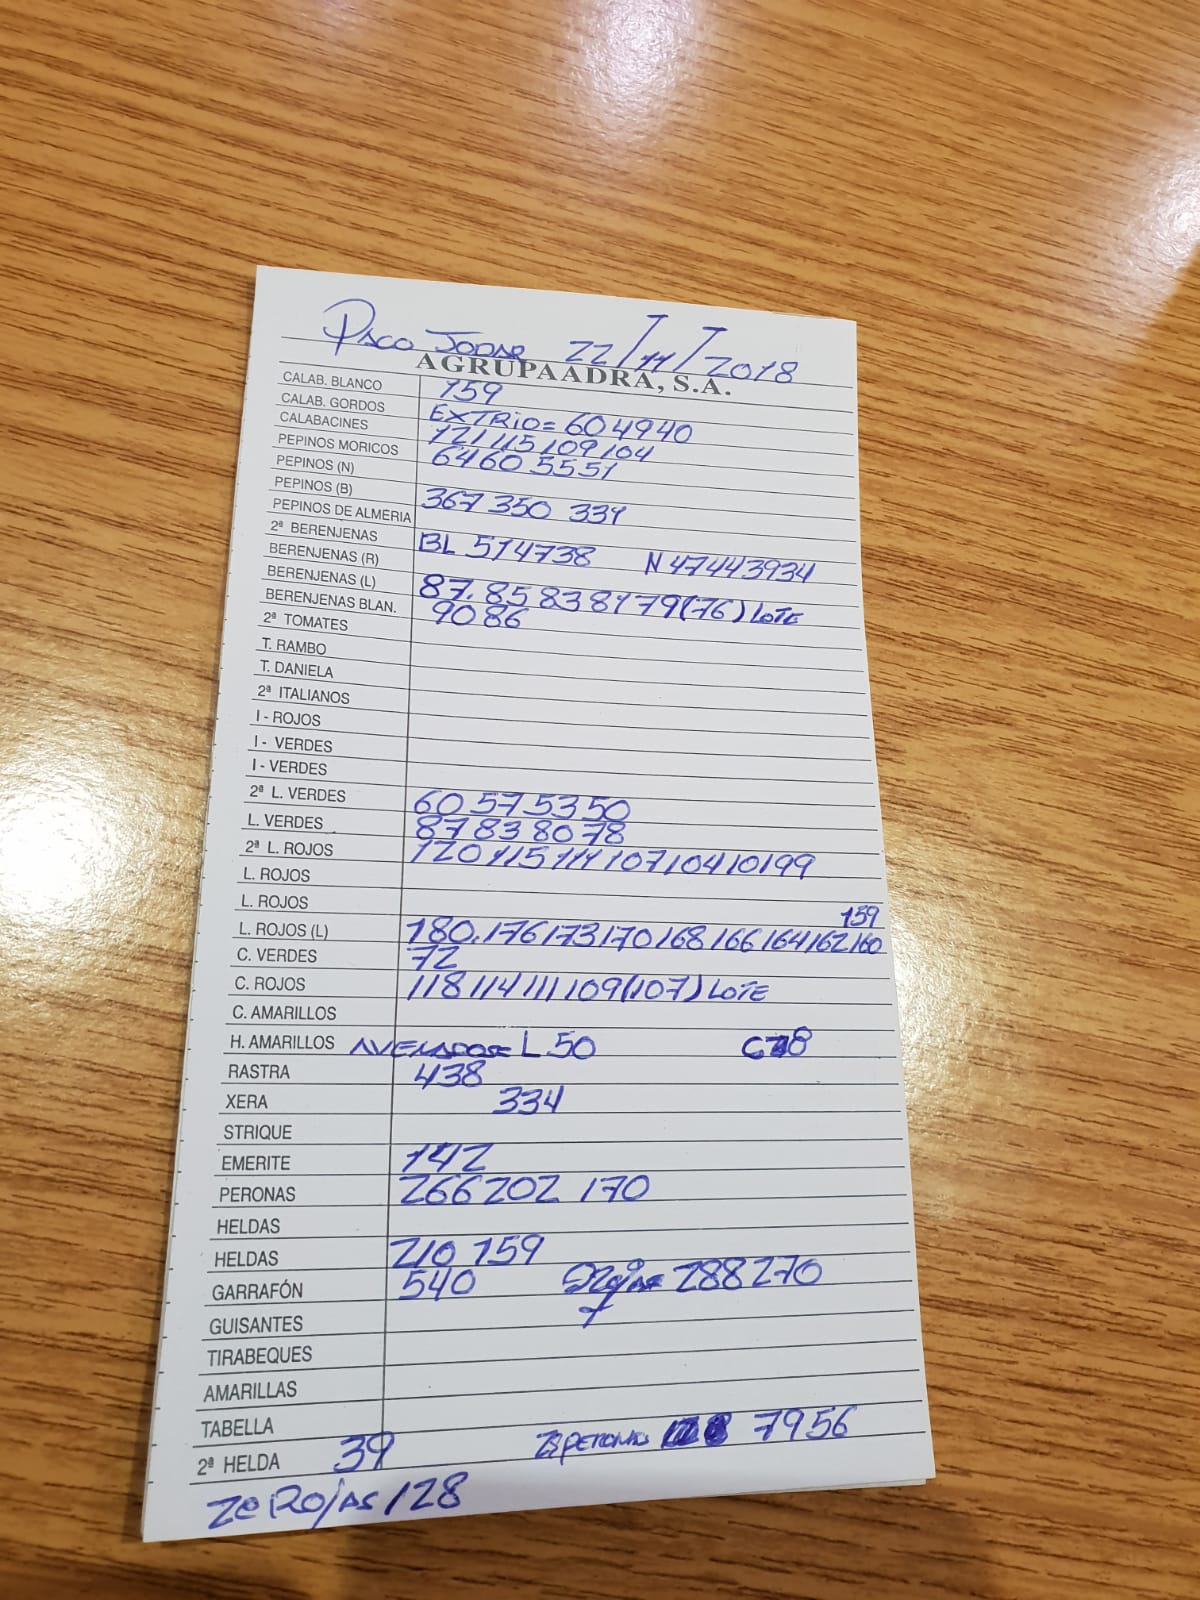 PACO JODAR 22/11/2018
AGRUPAADRA, S.A.
CALAB. BLANCO 159
CALAB. GORDOS EXTRIO= 60 49 40
CALABACINES 121 115 109 104
PEPINOS MORICOS 64 60 55 51
PEPINOS (N)
PEPINOS (B) 367 350 331
PEPINOS DE ALMERIA
2ª BERENJENAS BL 51 47 38 N 47 44 39 34
BERENJENAS (R)
BERENJENAS (L) 87. 85 83 81 79 (76) LOTE
BERENJENAS BLAN. 90 86
2ª TOMATES
T. RAMBO
T. DANIELA
2ª ITALIANOS
I - ROJOS
I - VERDES
I - VERDES
2ª L. VERDES 60 57 53 50
L. VERDES 87 83 80 78
2ª L. ROJOS 120 115 111 107 104 101 99
L. ROJOS
L. ROJOS 159
L. ROJOS (L) 180. 176 173 170 168 166 164 162 160
C. VERDES 72
C. ROJOS 118 114 111 109 (107) LOTE
C. AMARILLOS
H. AMARILLOS L 50
RASTRA 438
XERA 334
STRIQUE
EMERITE 142
PERONAS 266 202 170
HELDAS
HELDAS 210 159
GARRAFÓN 540 288 270
GUISANTES
TIRABEQUES
AMARILLAS
TABELLA
2ª HELDA 39 79 56
2ª ROJAS 128